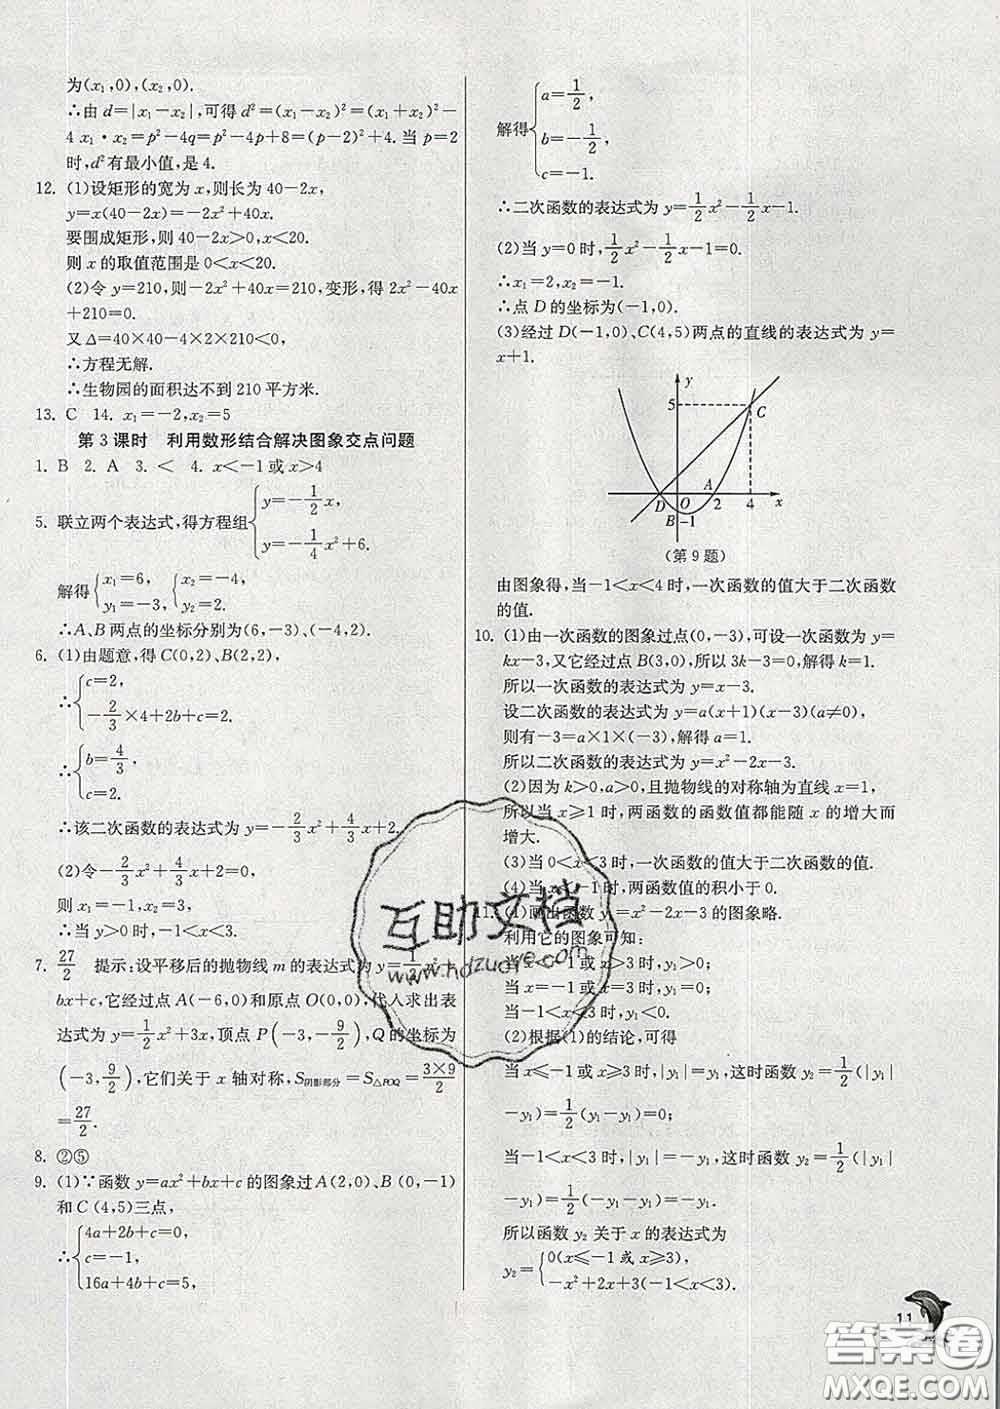 为(x₁,0),(x₂,0).
∴由 d=|x₁-x₂|,可得 d²=(x₁-x₂)²=(x₁+x₂)²-
4x₁·x₂=p²-4q=p²-4p+8=(p-2)²+4. 当 p=2
时,d²有最小值,是 4.
12. (1)设矩形的宽为 x,则长为 40-2x,
y=x(40-2x)=-2x²+40x.
要围成矩形,则 40-2x>0,x<20.
则 x 的取值范围是 0<x<20.
(2)令 y=210,则-2x²+40x=210,变形,得 2x²-40x
+210=0.
又 Δ=40×40-4×2×210<0,
∴方程无解.
∴生物园的面积达不到 210 平方米.
13. C 14. x₁=-2,x₂=5
第 3 课时 利用数形结合解决图象交点问题
1. B 2. A 3. < 4. x<-1 或 x>4
5. 联立两个表达式,得方程组{y=-1/2x,
y=-1/4x²+6.
解得{x₁=6, {x₂=-4,
y₁=-3, y₂=2.
∴A、B 两点的坐标分别为(6,-3)、(-4,2).
6. (1)由题意,得 C(0,2)、B(2,2),
∴{c=2,
-2/3×4+2b+c=2.
∴{b=4/3,
c=2.
∴该二次函数的表达式为 y=-2/3x²+4/3x+2.
(2)令-2/3x²+4/3x+2=0,
则 x₁=-1,x₂=3.
∴当 y>0 时,-1<x<3.
7. 27/2 提示:设平移后的抛物线 m 的表达式为 y=1/2x²+
bx+c,它经过点 A(-6,0)和原点 O(0,0),代入求出表
达式为 y=1/2x²+3x,顶点 P(-3,-9/2),Q 的坐标为
(-3,9/2),它们关于 x 轴对称,S阴影部分=S△POQ=3×9/2
=27/2.
8. ②⑤
9. (1)∵函数 y=ax²+bx+c 的图象过 A(2,0)、B(0,-1)
和 C(4,5)三点,
∴{4a+2b+c=0,
c=-1,
16a+4b+c=5,
解得{a=1/2,
b=-1/2,
c=-1.
∴二次函数的表达式为 y=1/2x²-1/2x-1.
(2)当 y=0 时,1/2x²-1/2x-1=0.
∴x₁=2,x₂=-1.
∴点 D 的坐标为(-1,0).
(3)经过 D(-1,0)、C(4,5)两点的直线的表达式为 y=
x+1.
y
5
C
A
D O 2 4 x
B -1
(第 9 题)
由图象得,当-1<x<4 时,一次函数的值大于二次函数
的值.
10. (1)由一次函数的图象过点(0,-3),可设为 y=
kx-3,又它经过点 B(3,0),所以 3k-3=0,解得 k=1.
所以一次函数的表达式为 y=x-3.
设二次函数的表达式为 y=a(x+1)(x-3)(a≠0),
则有-3=a×1×(-3),解得 a=1.
所以二次函数的表达式为 y=x²-2x-3.
(2)因为 k>0,a>0,且抛物线的对称轴为直线 x=1,
所以当 x≥1 时,两函数的函数值都能随 x 的增大而
增大.
(3)当 0<x<3 时,一次函数的值大于二次函数的值.
(4)当 x<-1 时,两函数值的积小于 0.
11. (1)画出函数 y=x²-2x-3 的图象略.
利用它的图象可知:
当 x<-1 或 x>3 时,y₁>0;
当 x=-1 或 x=3 时,y₁=0;
当-1<x<3 时,y₁<0
(2)根据(1)的结论,可得
当 x≤-1 或 x≥3 时,|y₁|=y₁,这时函数 y₂=1/2(|y₁|
-y₁)=1/2(y₁-y₁)=0;
当-1<x<3 时,|y₁|=-y₁,这时函数 y₂=1/2(|y₁|
-y₁)=1/2(-y₁-y₁)=-y₁.
所以函数 y₂ 关于 x 的表达式为
y₂={0(x≤-1 或 x≥3),
-x²+2x+3(-1<x<3).
互助文档
www.hdzuoye.com
11
答案圈
MXQE.COM